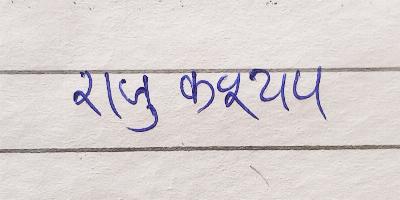 राजु कश्यप